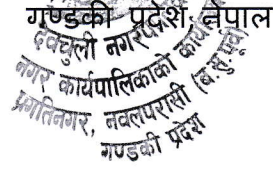 गण्डकी प्रदेश, नेपाल
देवचुली नगरपा
नगर कार्यपालिकाको कार्या
प्रगतिनगर, नवलपरासी (ब.सु.पूर्व)
गण्डकी प्रदेश